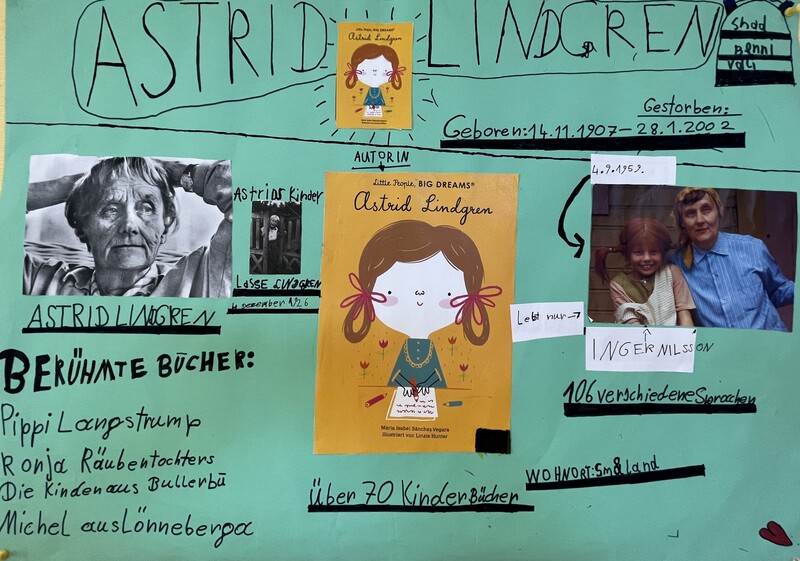 ASTRID LINDGREN
LITTLE PEOPLE, BIG DREAMS
Astrid Lindgren
Shad
Benni
Vali
Gestorben:
Geboren: 14.11.1907 – 28.1.2002
AUTORIN
4.9.1959.
Astrids Kinder
LASSE LINDGREN
4 Dezember 1926
ASTRID LINDGREN
Little People, BIG DREAMS®
Astrid Lindgren
Maria Isabel Sánchez Vegara
Illustriert von Linzie Hunter
Lebt nur →
INGER NILSSON
BERÜHMTE BÜCHER:
Pippi Langstrump
Ronja Räubentochters
Die Kinden aus Bullerbü
Michel aus Lönneberga
106 verschiedene Sprachen
WOHNORT: Småland
Über 70 Kinder Bücher